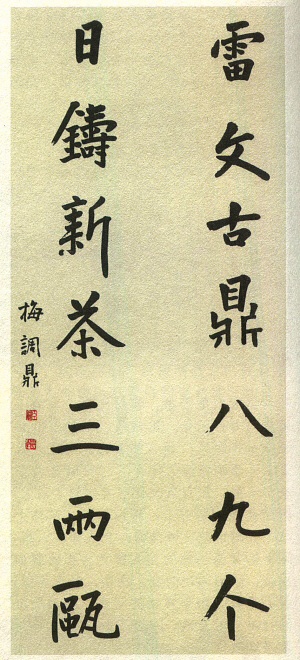 雷文古鼎八九个
日鑄新茶三兩甌
梅調鼎